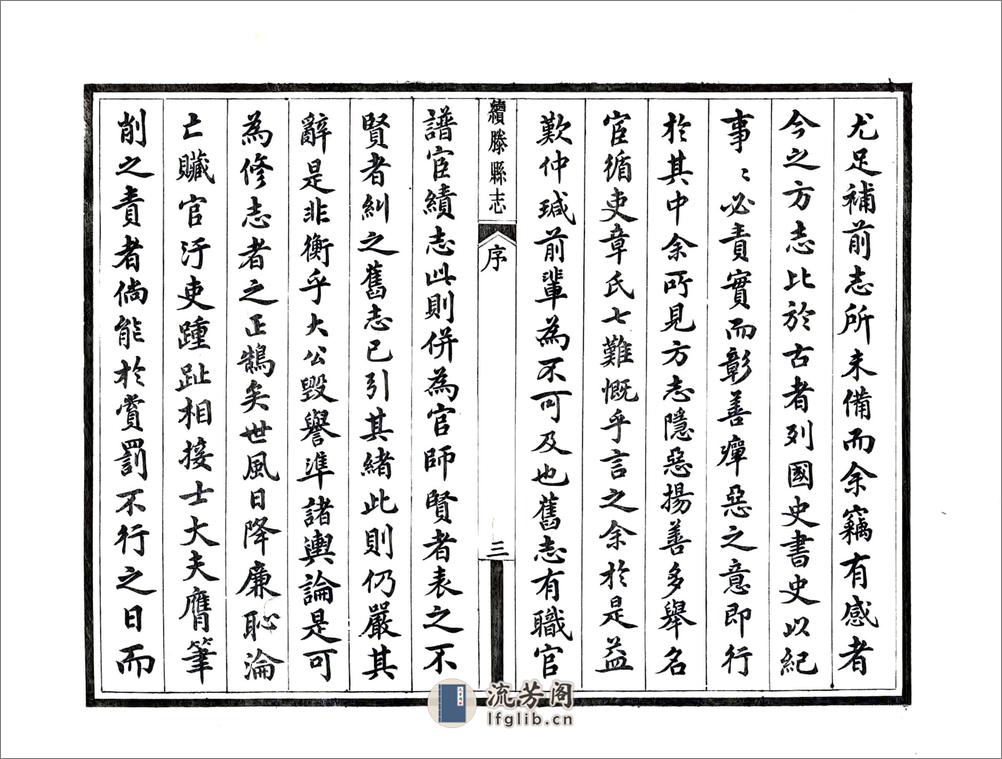 尤足補前志所未備而余竊有感者
今之方志比於古者列國史書史以紀
事〻必責實而彰善癉惡之意即行
於其中余所見方志隱惡揚善多舉名
宦循吏章氏七難慨乎言之余於是益
歎仲瑊前輩為不可及也舊志有職官
續滕縣志
序
三
譜宦績志此則併為官師賢者表之不
賢者糾之舊志已引其緒此則仍嚴其
辭是非衡乎大公毀譽準諸輿論是可
為修志者之正鵠矣世風日降廉恥淪
亡贓官汙吏踵趾相接士大夫膺筆
削之責者倘能於賞罰不行之日而
流芳阁
lfglib.cn